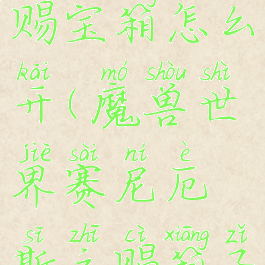 赐宝箱怎么
kāi mó shòu shì
开(魔兽世
jiè sài ní è
界赛尼厄
sī zhī cì xiāng zǐ
斯之赐箱子